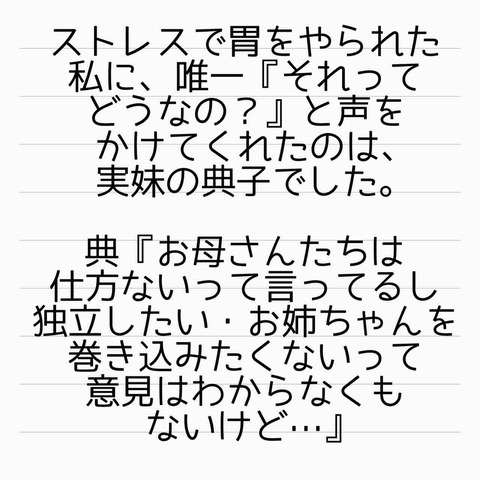 ストレスで胃をやられた
私に、唯一『それって
どうなの？』と声を
かけてくれたのは、
実妹の典子でした。
典『お母さんたちは
仕方ないって言ってるし
独立したい・お姉ちゃんを
巻き込みたくないって
意見はわからなくも
ないけど…』